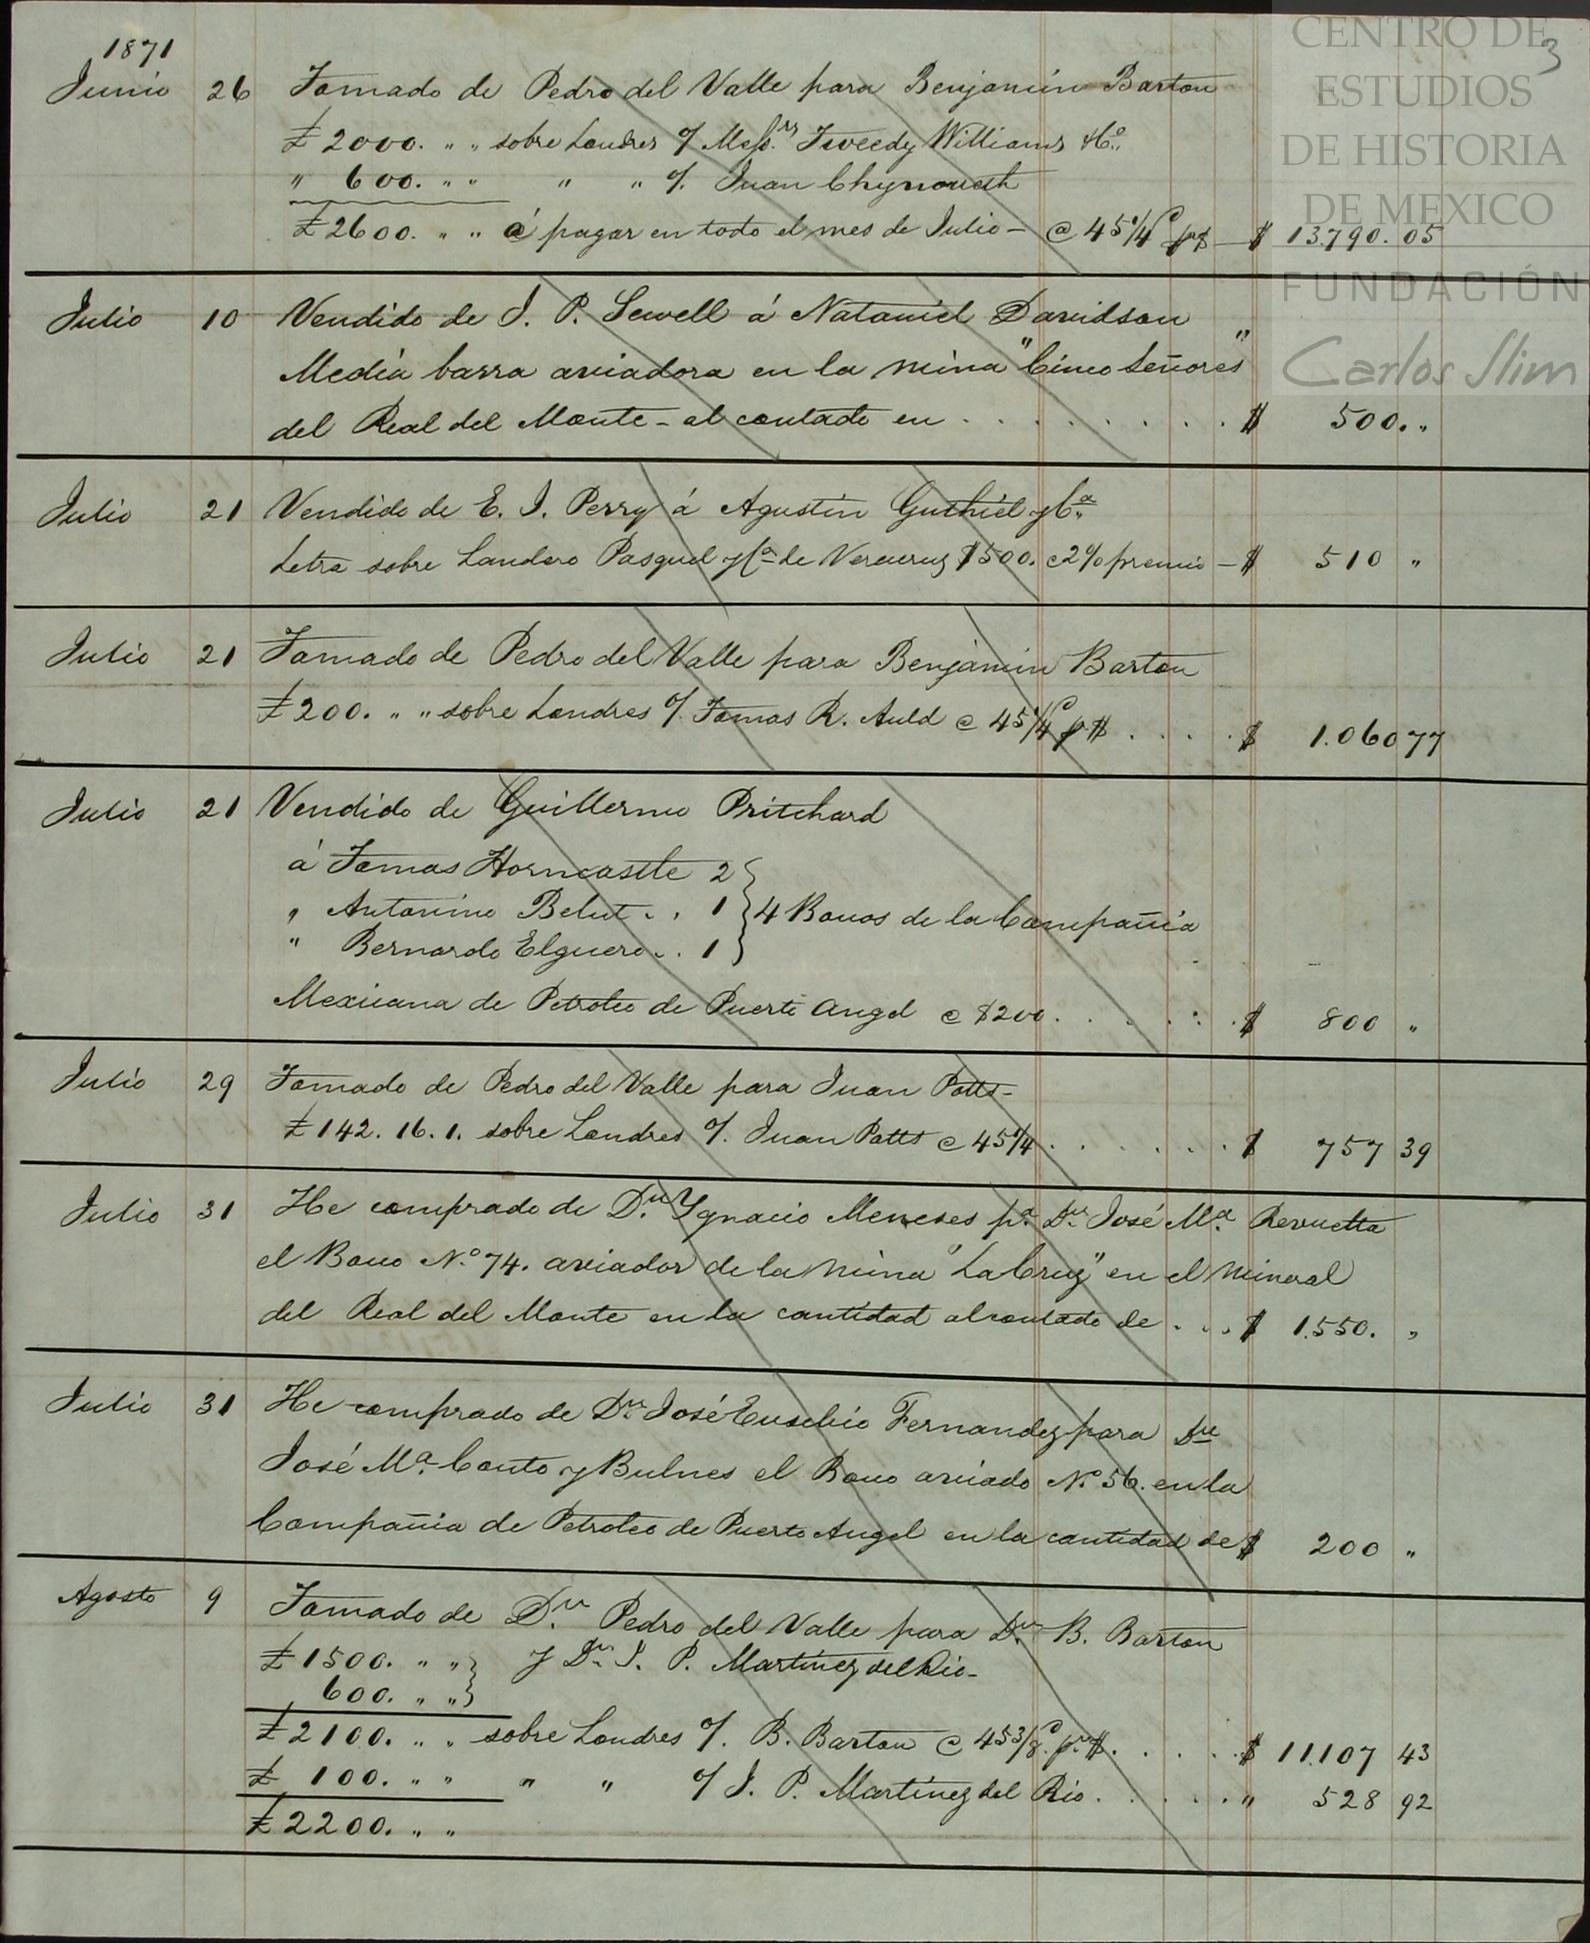 CENTRO DE
ESTUDIOS
DE HISTORIA
DE MEXICO
FUNDACIÓN
Carlos Slim
3
1871
Junio 26 Tomado de Pedro del Valle para Benjamin Barton
£ 2000. " " sobre Londres c/ Messrs Tweedy Williams &Co.
" 600. " " " " c/. Juan Chynoweth
£ 2600. " " á pagar en todo el mes de Julio - @ 45 1/4 d p $ - $ 13.790. 05
Julio 10 Vendido de J. P. Sewell á Nataniel Davidson
Media barra aviadora en la mina "Cinco Señores"
del Real del Monte - al contado en . . . . . . . . $ 500. "
Julio 21 Vendido de E. J. Perry á Agustin Guthiel y Ca.
Letra sobre Landero Pasquel y Ca de Veracruz $500. @ 2% premio - $ 510 "
Julio 21 Tomado de Pedro del Valle para Benjamin Barton
£ 200. " " sobre Londres c/. Tomas R. Auld @ 45 1/4 d p $ . . . . $ 1.060 77
Julio 21 Vendido de Guillermo Pritchard
á Tomas Horncastle 2
" Antonino Belut . . 1 } 4 Bonos de la Compañia
" Bernardo Elguero . . 1
Mexicana de Petroleo de Puerto Angel @ $200 . . . . . . $ 800 "
Julio 29 Tomado de Pedro del Valle para Juan Potts -
£ 142. 16. 1. sobre Londres c/. Juan Potts @ 45 1/4 . . . . . . $ 757 39
Julio 31 He comprado de Dn. Ygnacio Meneses pa. Dn. José Ma. Revuelta
el Bono No. 74. aviador de la mina "La Cruz" en el mineral
del Real del Monte en la cantidad al contado de . . . $ 1.550. "
Julio 31 He comprado de Dn. José Eusebio Fernandez para Dn
José Ma. Couto y Bulnes el Bono aviado No. 56. en la
Compañia de Petroleo de Puerto Angel en la cantidad de $ 200 "
Agosto 9 Tomado de Dn. Pedro del Valle para Dn. B. Barton
£ 1500. " " } y Dn. J. P. Martinez del Rio -
600. " " }
£ 2100. " " sobre Londres c/. B. Barton @ 45 3/8 d. pr $ . . . . . $ 11.107 43
£ 100. " " " " c/ J. P. Martinez del Rio . . . . . " 528 92
£ 2200. " "